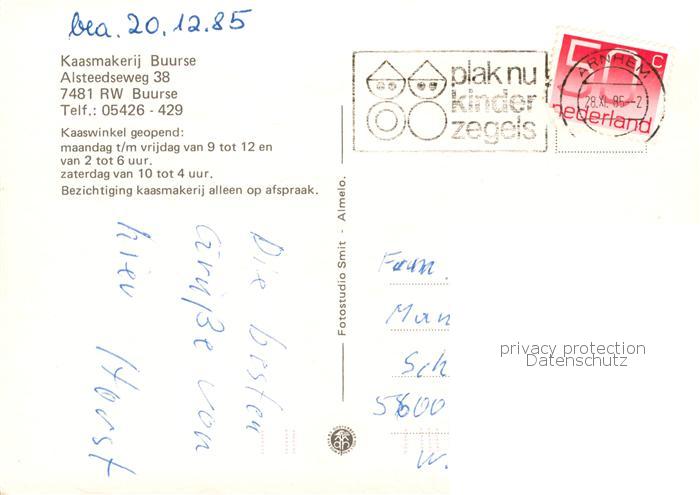 bea. 20.12.85
Kaasmakerij Buurse
Alsteedseweg 38
7481 RW Buurse
Telf.: 05426 - 429
Kaaswinkel geopend:
maandag t/m vrijdag van 9 tot 12 en
van 2 tot 6 uur.
zaterdag van 10 tot 4 uur.
Bezichtiging kaasmakerij alleen op afspraak.
plak nu
kinder
zegels
50 c
nederland
ARNHEM
28.XI.85-2
Fotostudio Smit - Almelo.
Die besten
Grüße von
hier Horst
Fam.
Man
Sch
5600
W.
privacy protection
Datenschutz